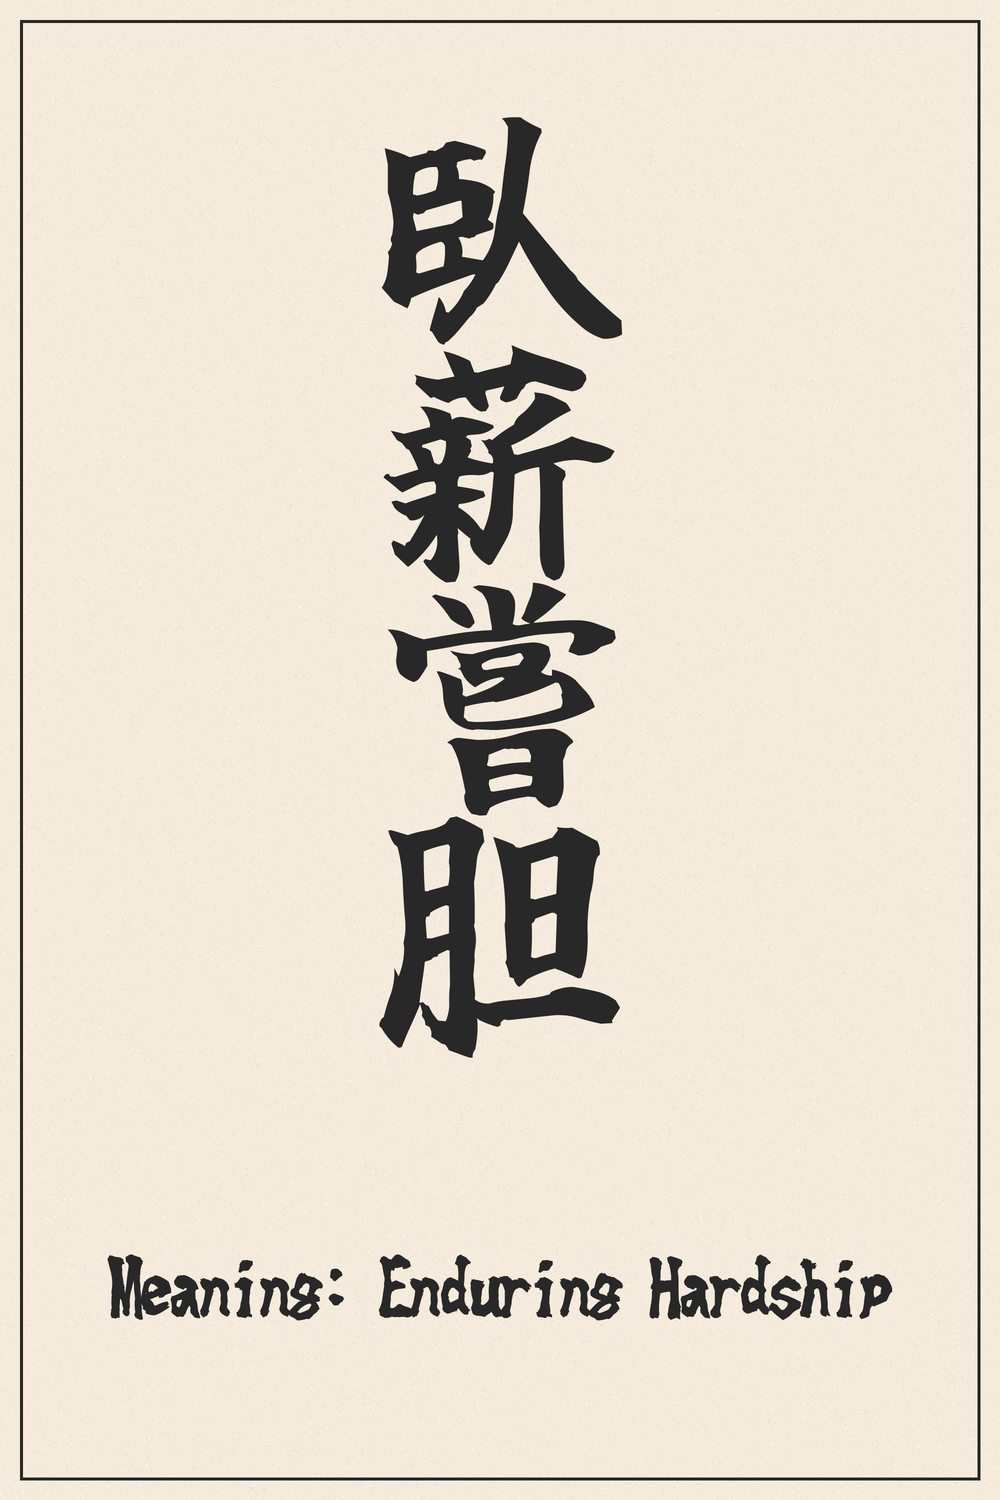 臥薪嘗胆
Meaning: Enduring Hardship